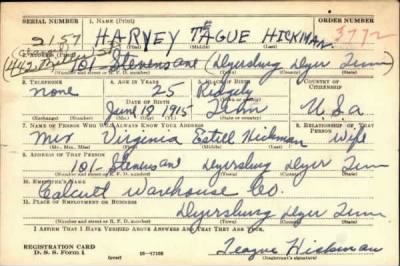 SERIAL NUMBER 1. NAME (Print) ORDER NUMBER
2157 HARVEY TAGUE HICKMAN 3772
(First) (Middle) (Last)
101 Stevens ant Dyersburg Dyer Tenn
(Number and street or R. F. D. number) (Town) (County) (State)
3. TELEPHONE 4. AGE IN YEARS 5. PLACE OF BIRTH 6. COUNTRY OF CITIZENSHIP
none 25 Ridgely
June 12 1915 Tenn U.S.a
(Exchange) (Number) (Mo.) (Day) (Yr.) (State or country)
7. NAME OF PERSON WHO WILL ALWAYS KNOW YOUR ADDRESS 8. RELATIONSHIP OF THAT PERSON
Mrs Virginia Estell Hickman Wife
(Mr., Mrs., Miss) (First) (Middle) (Last)
9. ADDRESS OF THAT PERSON
101 Stevens an Dyersburg Dyer Tenn
(Number and street or R. F. D. number) (Town) (County) (State)
10. EMPLOYER'S NAME
Calcutt Warehouse Co.
11. PLACE OF EMPLOYMENT OR BUSINESS
Dyersburg Dyer Tenn
(Number and street or R. F. D. number) (Town) (County) (State)
I AFFIRM THAT I HAVE VERIFIED ABOVE ANSWERS AND THAT THEY ARE TRUE.
REGISTRATION CARD
D. S. S. Form 1 16-17105 Teague Hickman
(Registrant's signature)